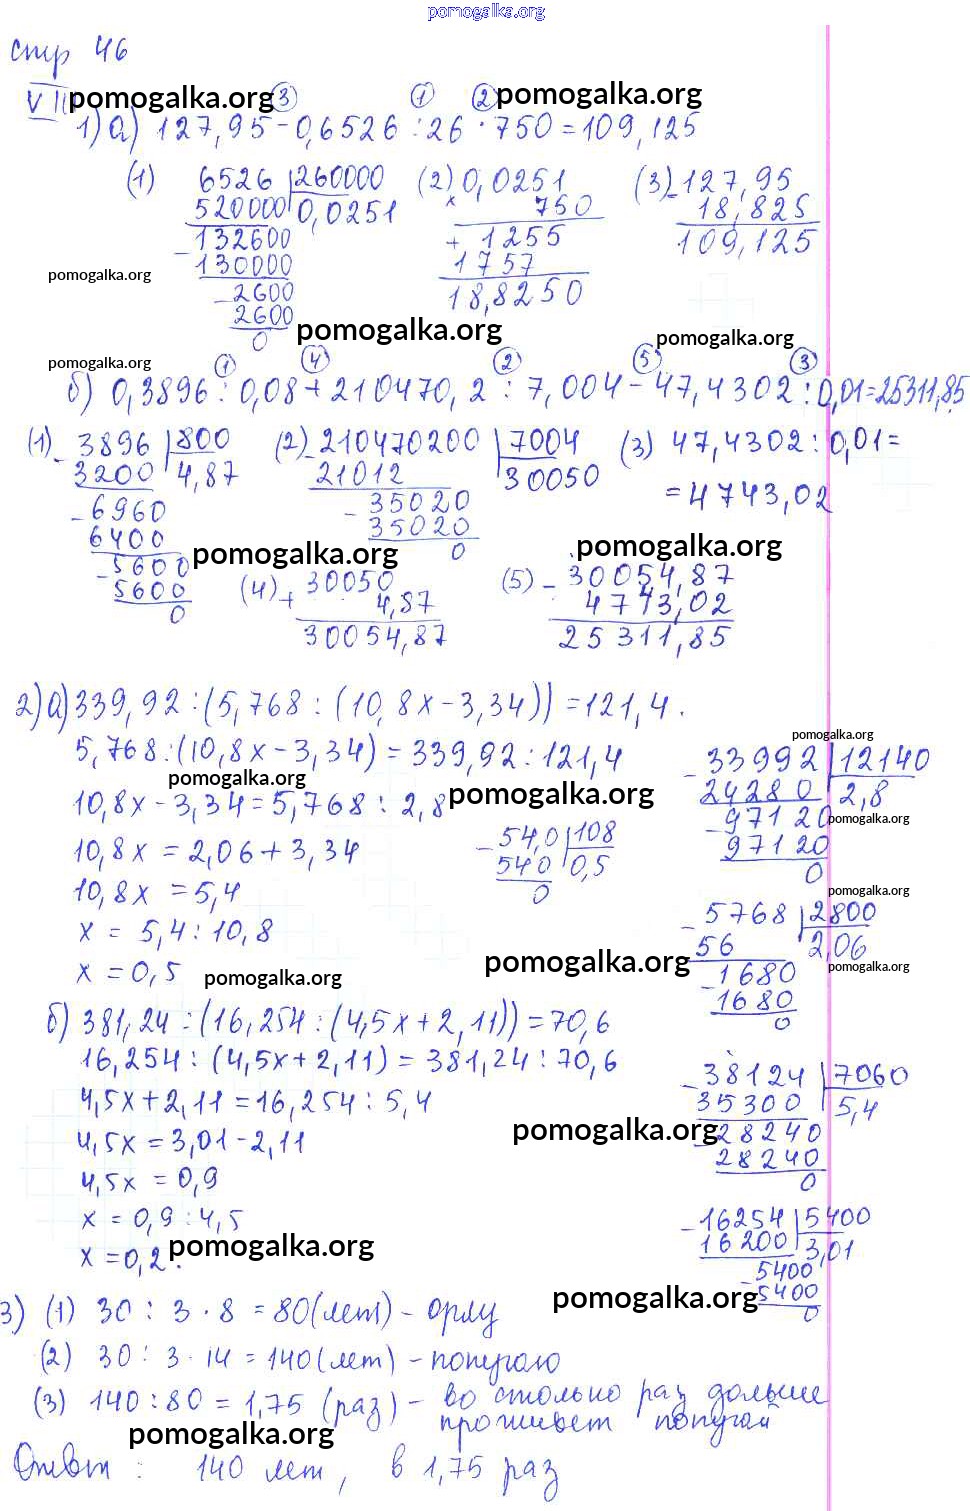 pomogalka.org
стр 46
VIII pomogalka.org ③ ① ② pomogalka.org
1) а) 127,95 - 0,6526 : 26 · 750 = 109,125
(1) 6526 | 260000 (2) 0,0251 (3) - 127,95
520000 | 0,0251 × 750 18,825
- 132600 + 1255 109,125
130000 1757
pomogalka.org - 2600 18,8250
2600
0 pomogalka.org pomogalka.org
pomogalka.org ① ④ ② ⑤ ③
б) 0,3896 : 0,08 + 210470,2 : 7,004 - 47,4302 : 0,01 = 25311,85
(1) - 3896 | 800 (2) - 210470200 | 7004 (3) 47,4302 : 0,01 =
3200 | 4,87 21012 | 30050 = 4743,02
- 6960 - 35020
6400 35020
- 5600 pomogalka.org 0 pomogalka.org
5600 (4) + 30050 (5) - 30054,87
0 4,87 4743,02
30054,87 25311,85
2) а) 339,92 : (5,768 : (10,8x - 3,34)) = 121,4.
pomogalka.org
5,768 : (10,8x - 3,34) = 339,92 : 121,4 - 33992 | 12140
pomogalka.org pomogalka.org 24280 | 2,8
10,8x - 3,34 = 5,768 : 2,8 - 97120 pomogalka.org
10,8x = 2,06 + 3,34 - 54,0 | 108 97120
10,8x = 5,4 540 | 0,5 0
0 pomogalka.org
x = 5,4 : 10,8 - 5768 | 2800
x = 0,5 pomogalka.org pomogalka.org 56 | 2,06
- 1680 pomogalka.org
1680
0
б) 381,24 : (16,254 : (4,5x + 2,11)) = 70,6
16,254 : (4,5x + 2,11) = 381,24 : 70,6 - 38124 | 7060
4,5x + 2,11 = 16,254 : 5,4 35300 | 5,4
4,5x = 3,01 - 2,11 pomogalka.org - 28240
4,5x = 0,9 28240
0
x = 0,9 : 4,5 - 16254 | 5400
x = 0,2. pomogalka.org 16200 | 3,01
- 5400
pomogalka.org 5400
0
3) (1) 30 : 3 · 8 = 80 (лет) - орлу
(2) 30 : 3 · 14 = 140 (лет) - попугаю
(3) 140 : 80 = 1,75 (раз) - во столько раз дольше
проживет попугай
pomogalka.org
Ответ : 140 лет, в 1,75 раз